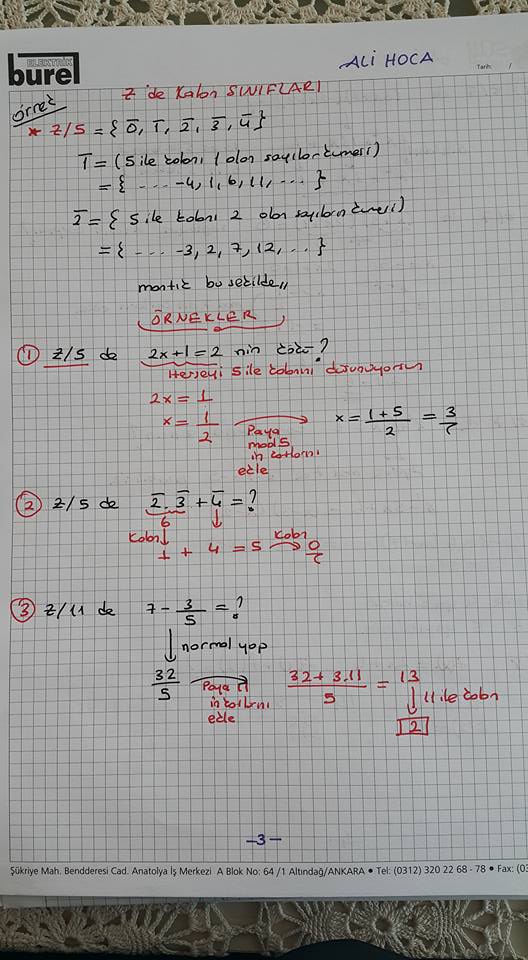 ELEKTRİK
burel
ALİ HOCA
Tarih: /
Z'de Kalan SINIFLARI
örnek
* Z/5 = { 0̅, 1̅, 2̅, 3̅, 4̅ }
1̅ = (5 ile kalanı 1 olan sayılar kümesi)
= { .... -4, 1, 6, 11, ... }
2̅ = { 5 ile kalanı 2 olan sayıların kümesi)
= { .... -3, 2, 7, 12, ... }
mantık bu şekilde,,
ÖRNEKLER
① Z/5 de 2x+1=2 nin kökü?
Herşeyi 5 ile kalanını düşünüyorsun
2x = 1
x = 1/2
Paya mod 5 in katlarını ekle
x = (1+5)/2 = 3
② Z/5 de 2̅.3̅ + 4̅ = ?
6
Kalan
1 + 4 = 5 Kalan 0
③ Z/11 de 7 - 3/5 = ?
normal yap
32/5
Paya 11 in katlarını ekle
(32 + 3.11)/5 = 13
11 ile kalan
2
-3-
Şükriye Mah. Bendderesi Cad. Anatolya İş Merkezi A Blok No: 64 /1 Altındağ/ANKARA • Tel: (0312) 320 22 68 - 78 • Fax: (03